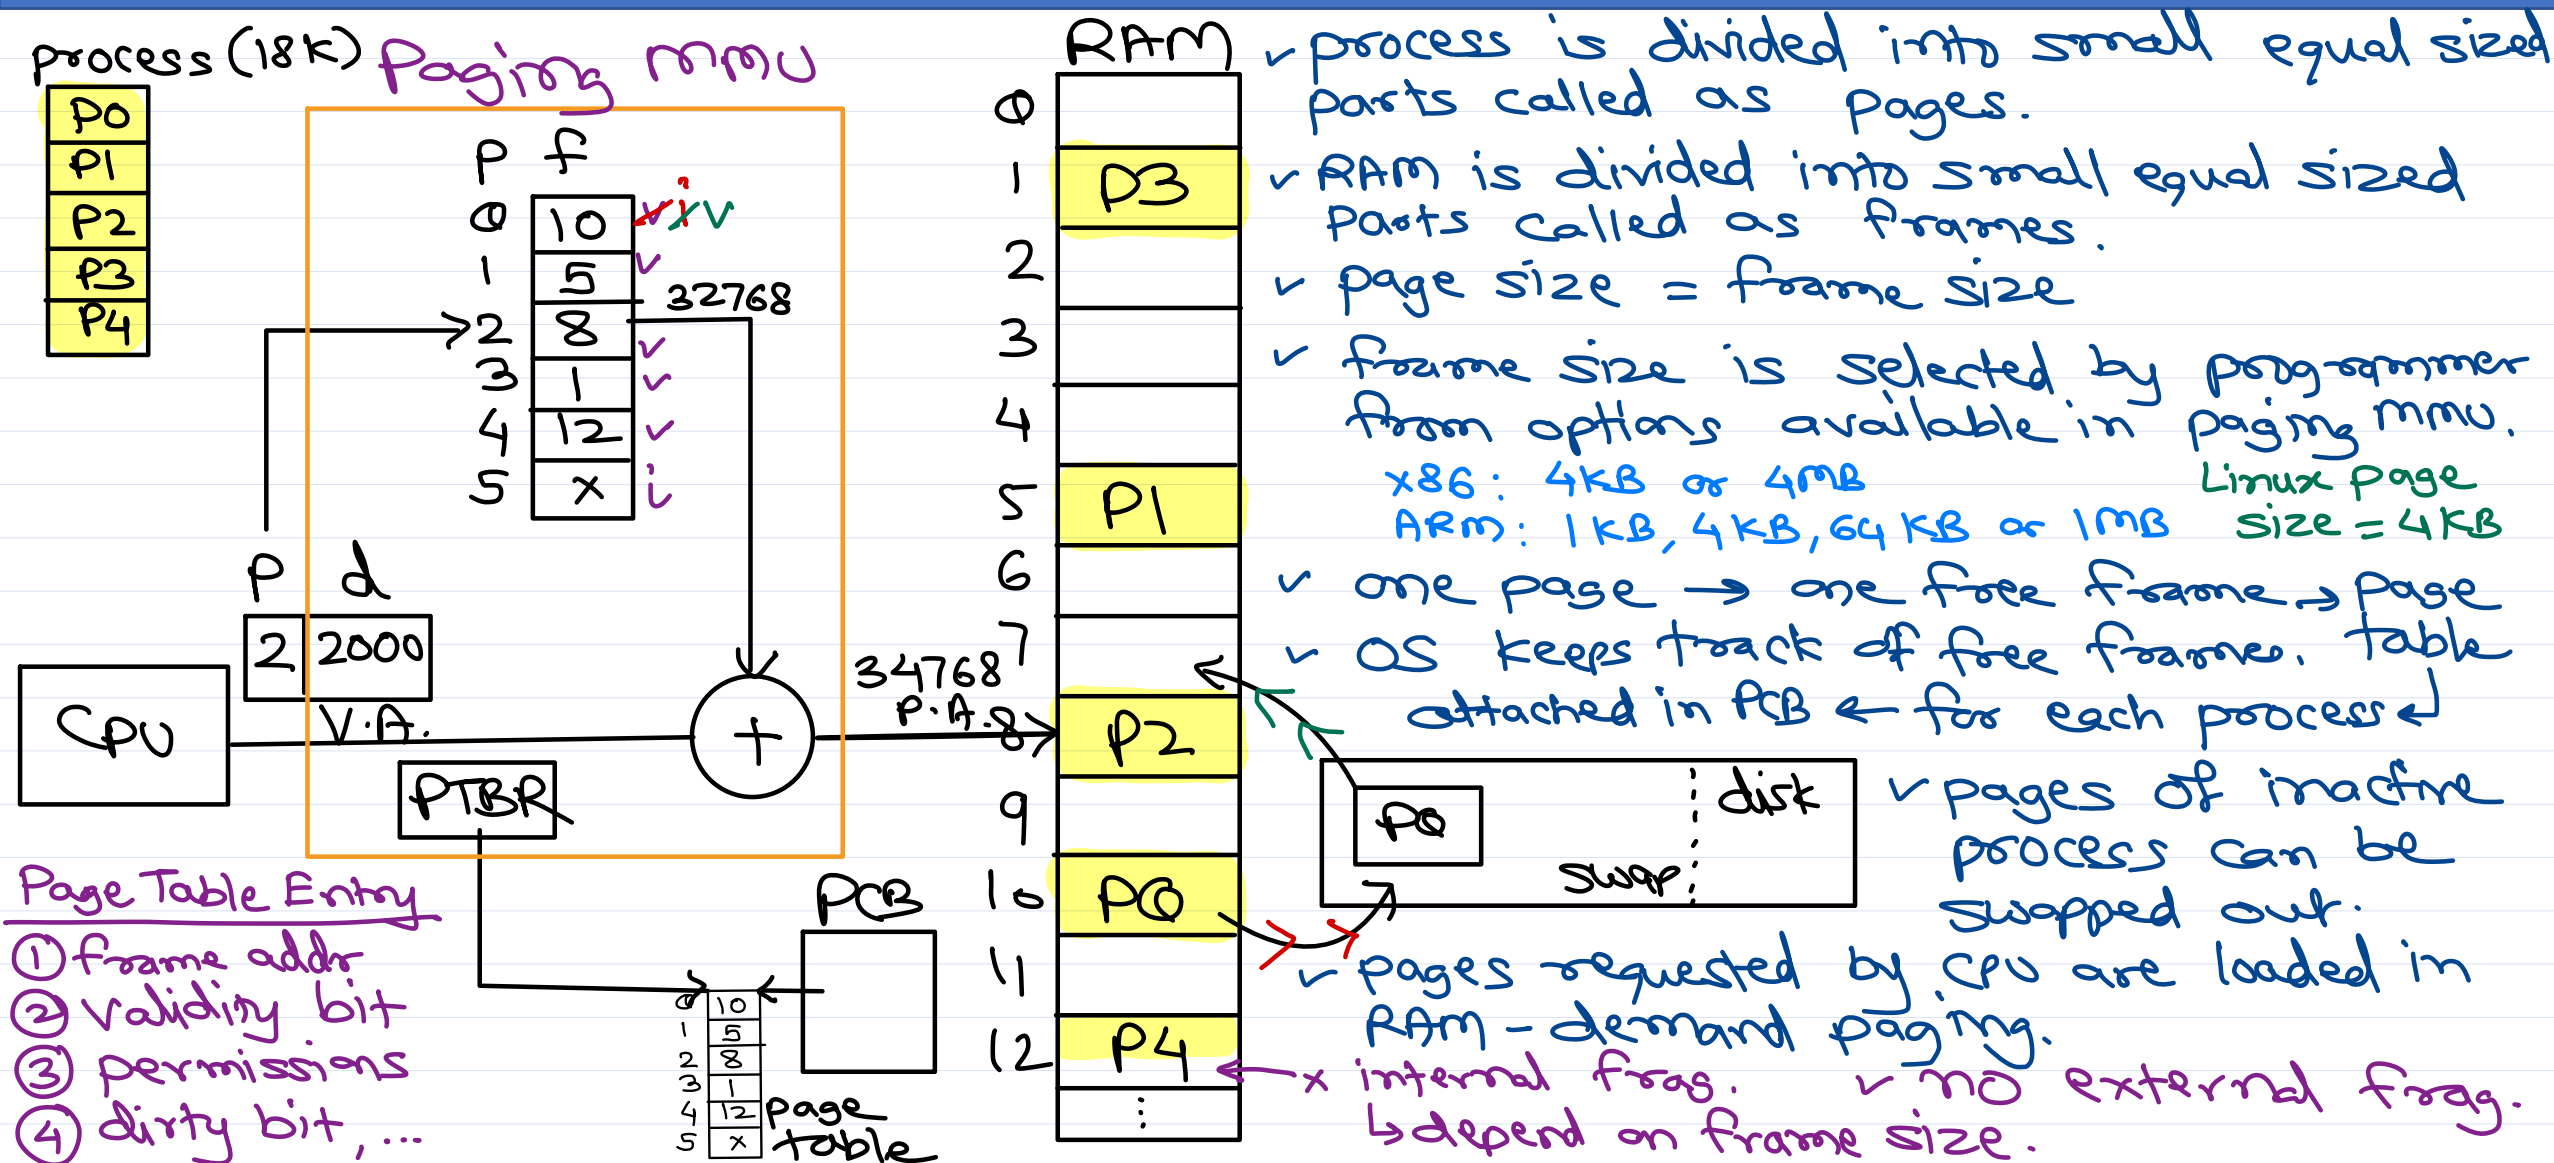 process (18K)
P0
P1
P2
P3
P4
Paging MMU
p f
0 10 v i v
1 5 v
2 8 v
3 1 v
4 12 v
5 x i
32768
p d
2 2000
V.A.
CPU
PTBR
+
34768
P.A.
Page Table Entry
① frame addr
② validity bit
③ permissions
④ dirty bit, ...
PCB
0 10
1 5
2 8
3 1
4 12
5 x
page
table
RAM
0
1 P3
2
3
4
5 P1
6
7
8 P2
9
10 P0
11
12 P4
⋮
✓ process is divided into small equal sized
parts called as pages.
✓ RAM is divided into small equal sized
parts called as frames.
✓ page size = frame size
✓ frame size is selected by programmer
from options available in paging MMU.
x86: 4KB or 4MB
ARM: 1KB, 4KB, 64KB or 1MB
Linux page
size = 4KB
✓ one page → one free frame → page
table
✓ OS keeps track of free frames.
attached in PCB ← for each process ↲
P0
swap
disk
✓ pages of inactive
process can be
swapped out.
✓ pages requested by CPU are loaded in
RAM - demand paging.
x internal frag. ✓ no external frag.
↳ depend on frame size.